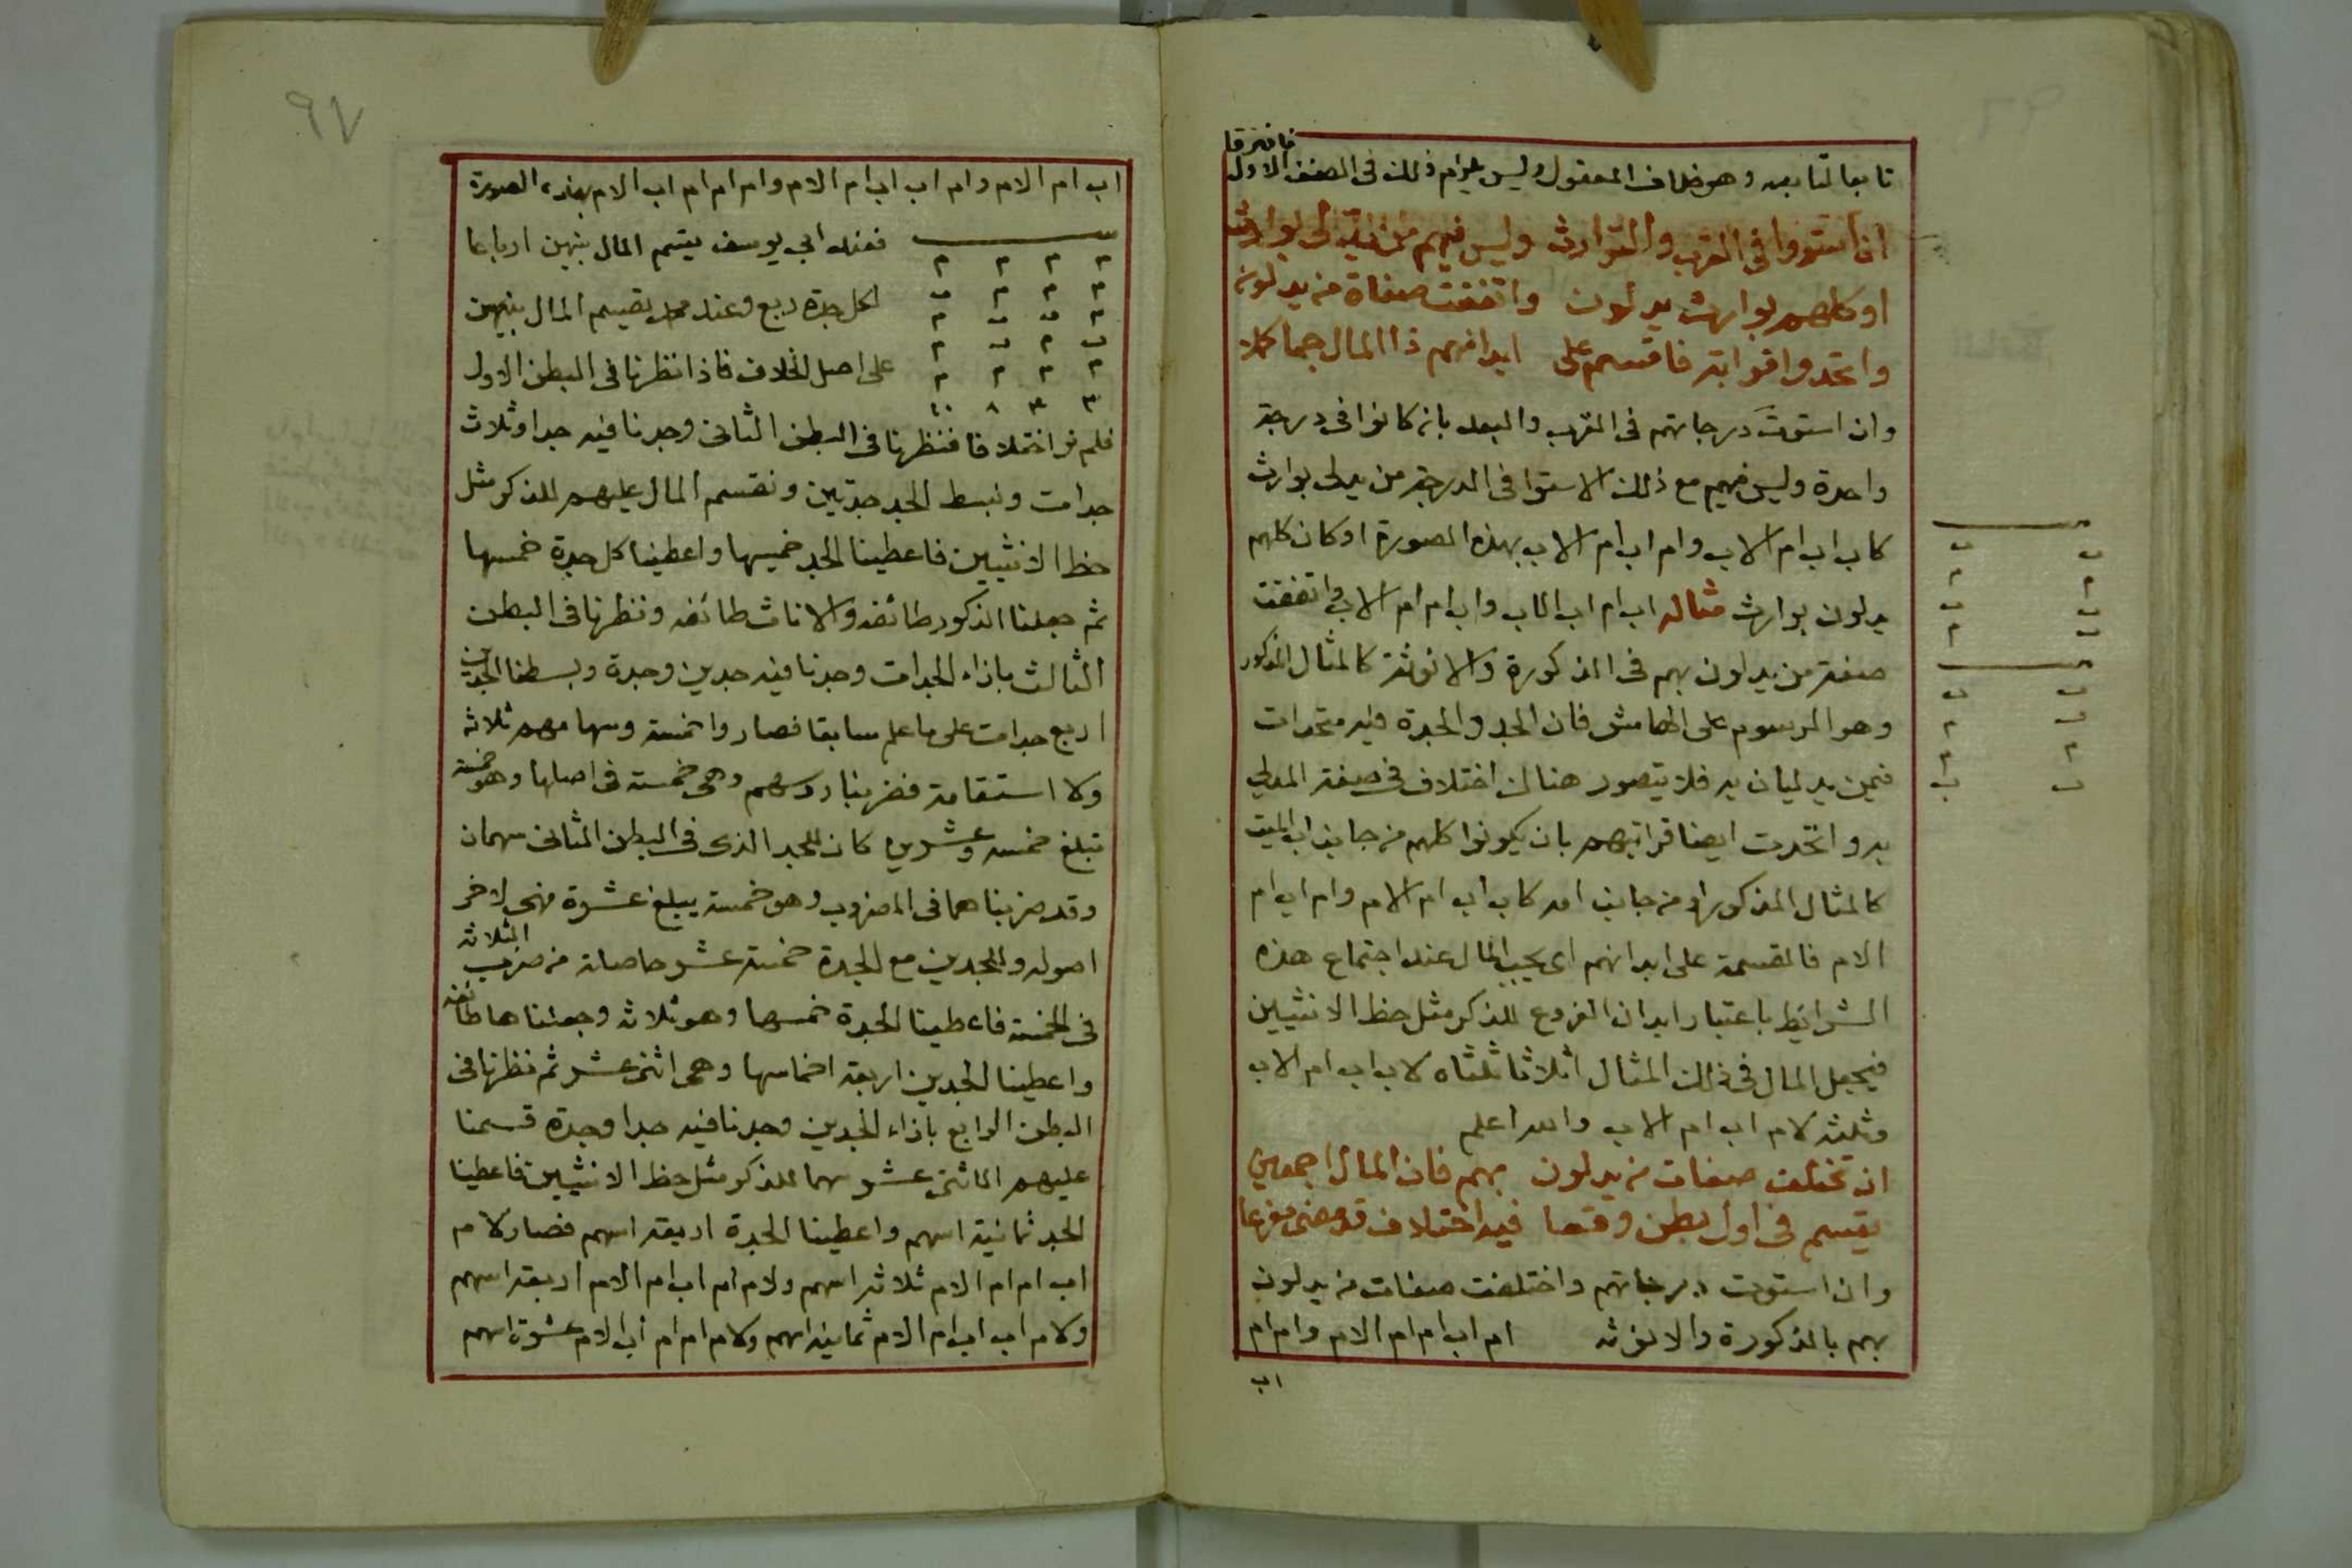 فافترقا
تابعا لتابعه وهو خلاف المعقول وليس يلزم ذلك فى الصنف الاول
ان استووا فى القرب والتوارث وليس فيهم من يدلى بوارث
او كلهم بوارث يدلون واتفقت صفاة من يدلونه
واتحدوا قرابة فاقسم على ابدانهم ذا المال جما كملا
وان استوت درجاتهم فى القرب والبعد بان كانوا فى درجة
واحدة وليس فيهم مع ذلك الاستوا فى الدرجة من يدلى بوارث
كاب اب ام الاب وام اب ام الاب بهذه الصورة او كان كلهم
يدلون بوارث مثاله اب ام اب الاب واب ام ام الاب واتفقت
صفة من يدلون بهم فى الذكورة والانوثة كالمثال المذكور
وهو المرسوم على الهامش فان الجد والجدة فيه متحدات
فيمن يدليان به فلا يتصور هنالك اختلاف فى صفة المدلى
به واتحدت ايضا قرابتهم بان يكونوا كلهم من جانب اب الميت
كالمثال المذكور او من جانب امه كاب اب ام الام وام اب ام
الام فالقسمة على ابدانهم اى يجب المال عند اجتماع هذه
الشرائط باعتبار ابدان الفروع للذكر مثل حظ الانثيين
فيجعل المال فى ذلك المثال اثلاثا ثلثاه لاب اب ام الاب
وثلثه لام اب ام الاب والله اعلم
ان تختلف صفات من يدلون بهم فان المال اجمعين
يقسم فى اول بطن وقعا فيه اختلاف قد مضى مفرعا
وان استوت درجاتهم واختلفت صفات من يدلون
بهم بالذكورة والانوثه ام اب ام ام الام وام ام
اب
٩٧
اب ام الام وام اب اب ام الام وام ام ام اب الام بهذه الصورة
فعند ابى يوسف يقسم المال بينهن ارباعا
لكل جدة ربع وعند محمد يقسم المال بينهن
على اصل الخلاف فاذا نظرنا فى البطن الاول
فلم نر اختلافا فنظرنا فى البطن الثانى وجدنا فيه جدا وثلاث
جدات ونبسط الجد جدتين ونقسم المال عليهم للذكر مثل
حظ الانثيين فاعطينا الجد خمسيها واعطينا كل جدة خمسها
ثم جعلنا الذكور طائفه والاناث طائفه ونظرنا فى البطن
الثالث باذاء الجدات وجدنا فيه جدين وجدة وبسطنا الجدين
اربع جدات على ما علم سابقا فصاروا خمسة وسهامهم ثلاثه
ولا استقامة فضربنا روسهم وهى خمسة فى اصلها وهو خمسة
تبلغ خمسه وعشرين كان للجد الذى فى البطن الثانى سهمان
وقد ضربناهما فى المضروب وهو خمسة يبلغ عشرة فهى لاخر
اصوله وللجدين مع الجدة خمسة عشر حاصلة من ضرب الثلاثه
فى الخمسة فاعطينا الجدة خمسها وهو ثلاثه وجعلناها طائفه
واعطينا الجدين اربعة اخماسها وهى اثنى عشر ثم نظرنا فى
البطن الرابع باذاء الجدين وجدنا فيه جدا وجدة قسمنا
عليهم الاثنى عشر سهما للذكر مثل حظ الانثيين فاعطينا
الجد ثمانية اسهم واعطينا الجدة اربعة اسهم فصار لام
اب ام ام الام ثلاثه اسهم ولام ام اب ام الام اربعة اسهم
ولام اب اب ام الام ثمانية اسهم ولام ام ام اب الام عشرة اسهم